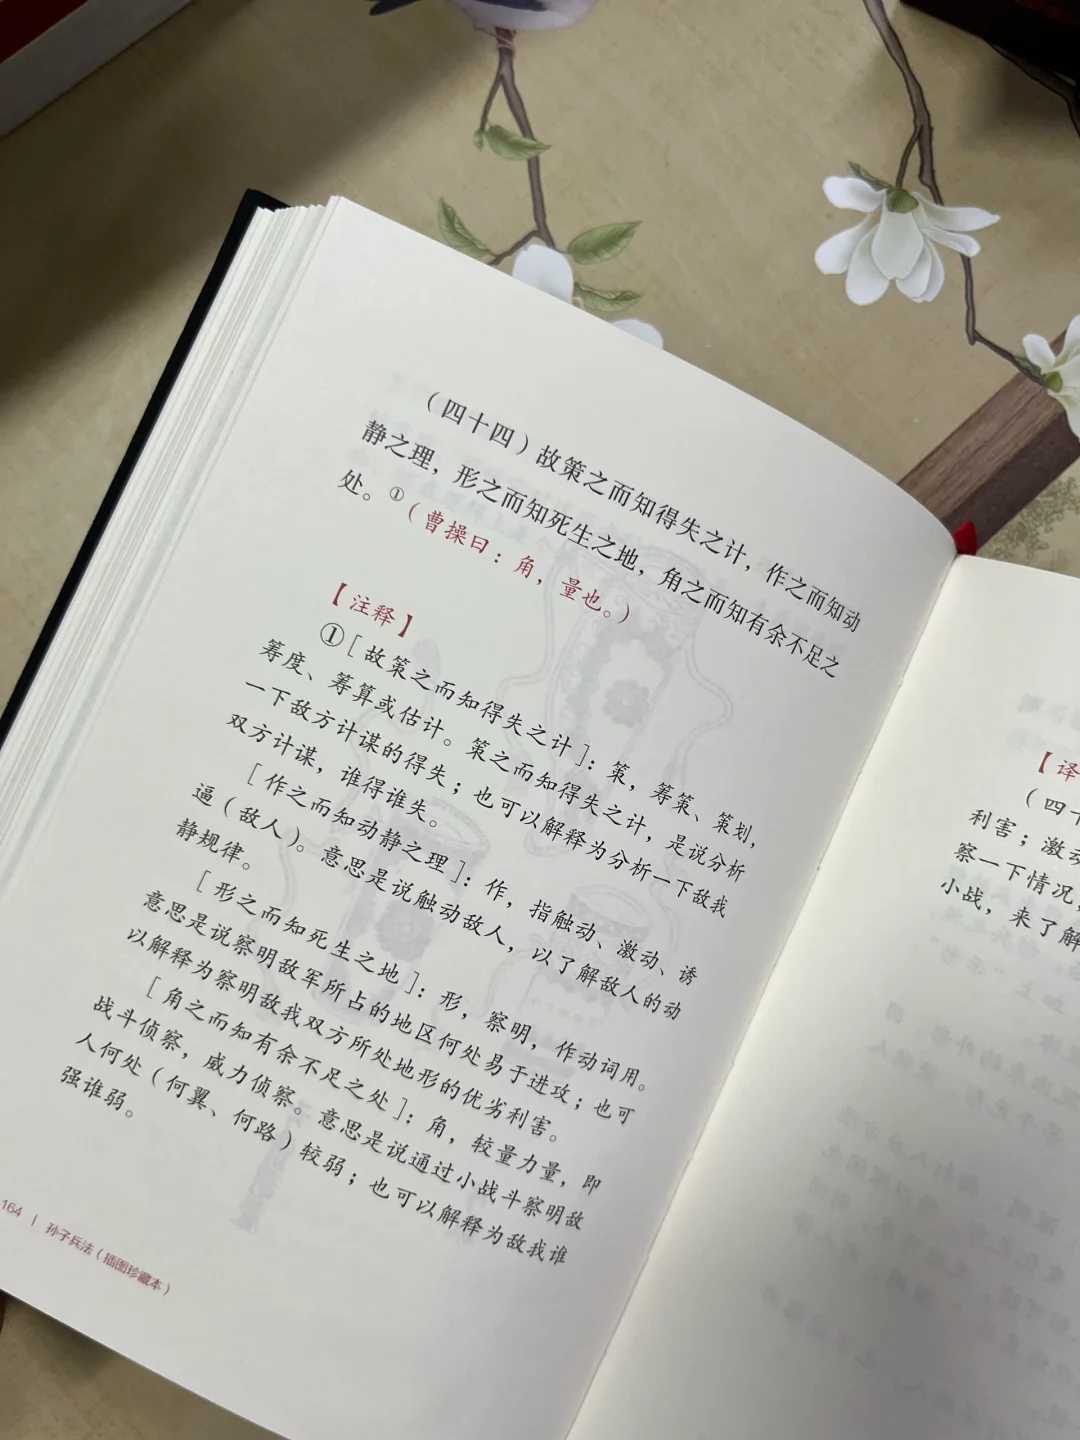 （四十四）故策之而知得失之计，作之而知动
静之理，形之而知死生之地，角之而知有余不足之
处。①（曹操曰：角，量也。）
【注释】
①［故策之而知得失之计］：策，筹策、策划，
筹度、筹算或估计。策之而知得失之计，是说分析
一下敌方计谋的得失；也可以解释为分析一下敌我
双方计谋，谁得谁失。
［作之而知动静之理］：作，指触动、激动、诱
逼（敌人）。意思是说触动敌人，以了解敌人的动
静规律。
［形之而知死生之地］：形，察明，作动词用。
意思是说察明敌军所占的地区何处易于进攻；也可
以解释为察明敌我双方所处地形的优劣利害。
［角之而知有余不足之处］：角，较量力量，即
战斗侦察，威力侦察。意思是说通过小战斗察明敌
人何处（何翼、何路）较弱；也可以解释为敌我谁
强谁弱。
164 | 孙子兵法（插图珍藏本）
【译
（四十
利害；激动
察一下情况，
小战，来了解